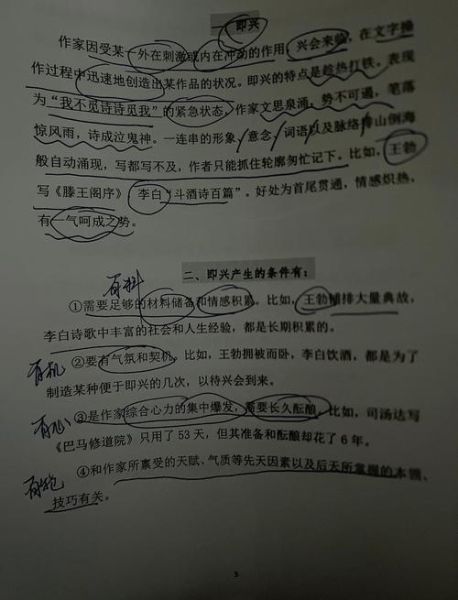 一、即兴
作家因受某一外在刺激或内在冲动的作用，兴会来临，在文字操
作过程中迅速地创造出某作品的状况。即兴的特点是趁热打铁。表现
为“我不觅诗诗觅我”的紧急状态，作家文思泉涌，势不可遏，笔落
惊风雨，诗成泣鬼神。一连串的形象、意念、词语以及脉络排山倒海
般自动涌现，写都写不及，作者只能抓住轮廓匆忙记下。比如，王勃
写《滕王阁序》，李白“斗酒诗百篇”。好处为首尾贯通，情感炽热，
有一气呵成之势。
有料
二、即兴产生的条件有：
①需要足够的材料储备和情感积累。比如，王勃铺排大量典故，
李白诗歌中丰富的社会和人生经验，都是长期积累的。
有机
②要有气氛和契机。比如，王勃拥被而卧，李白饮酒，都是为了
制造某种便于即兴的几次，以待兴会到来。
有心
③是作家综合心力的集中爆发，需要长久酝酿。比如，司汤达写
《巴马修道院》只用了 53 天，但其准备和酝酿却花了 6 年。
④和作家所禀受的天赋、气质等先天因素以及后天所掌握的本领、
技巧有关。